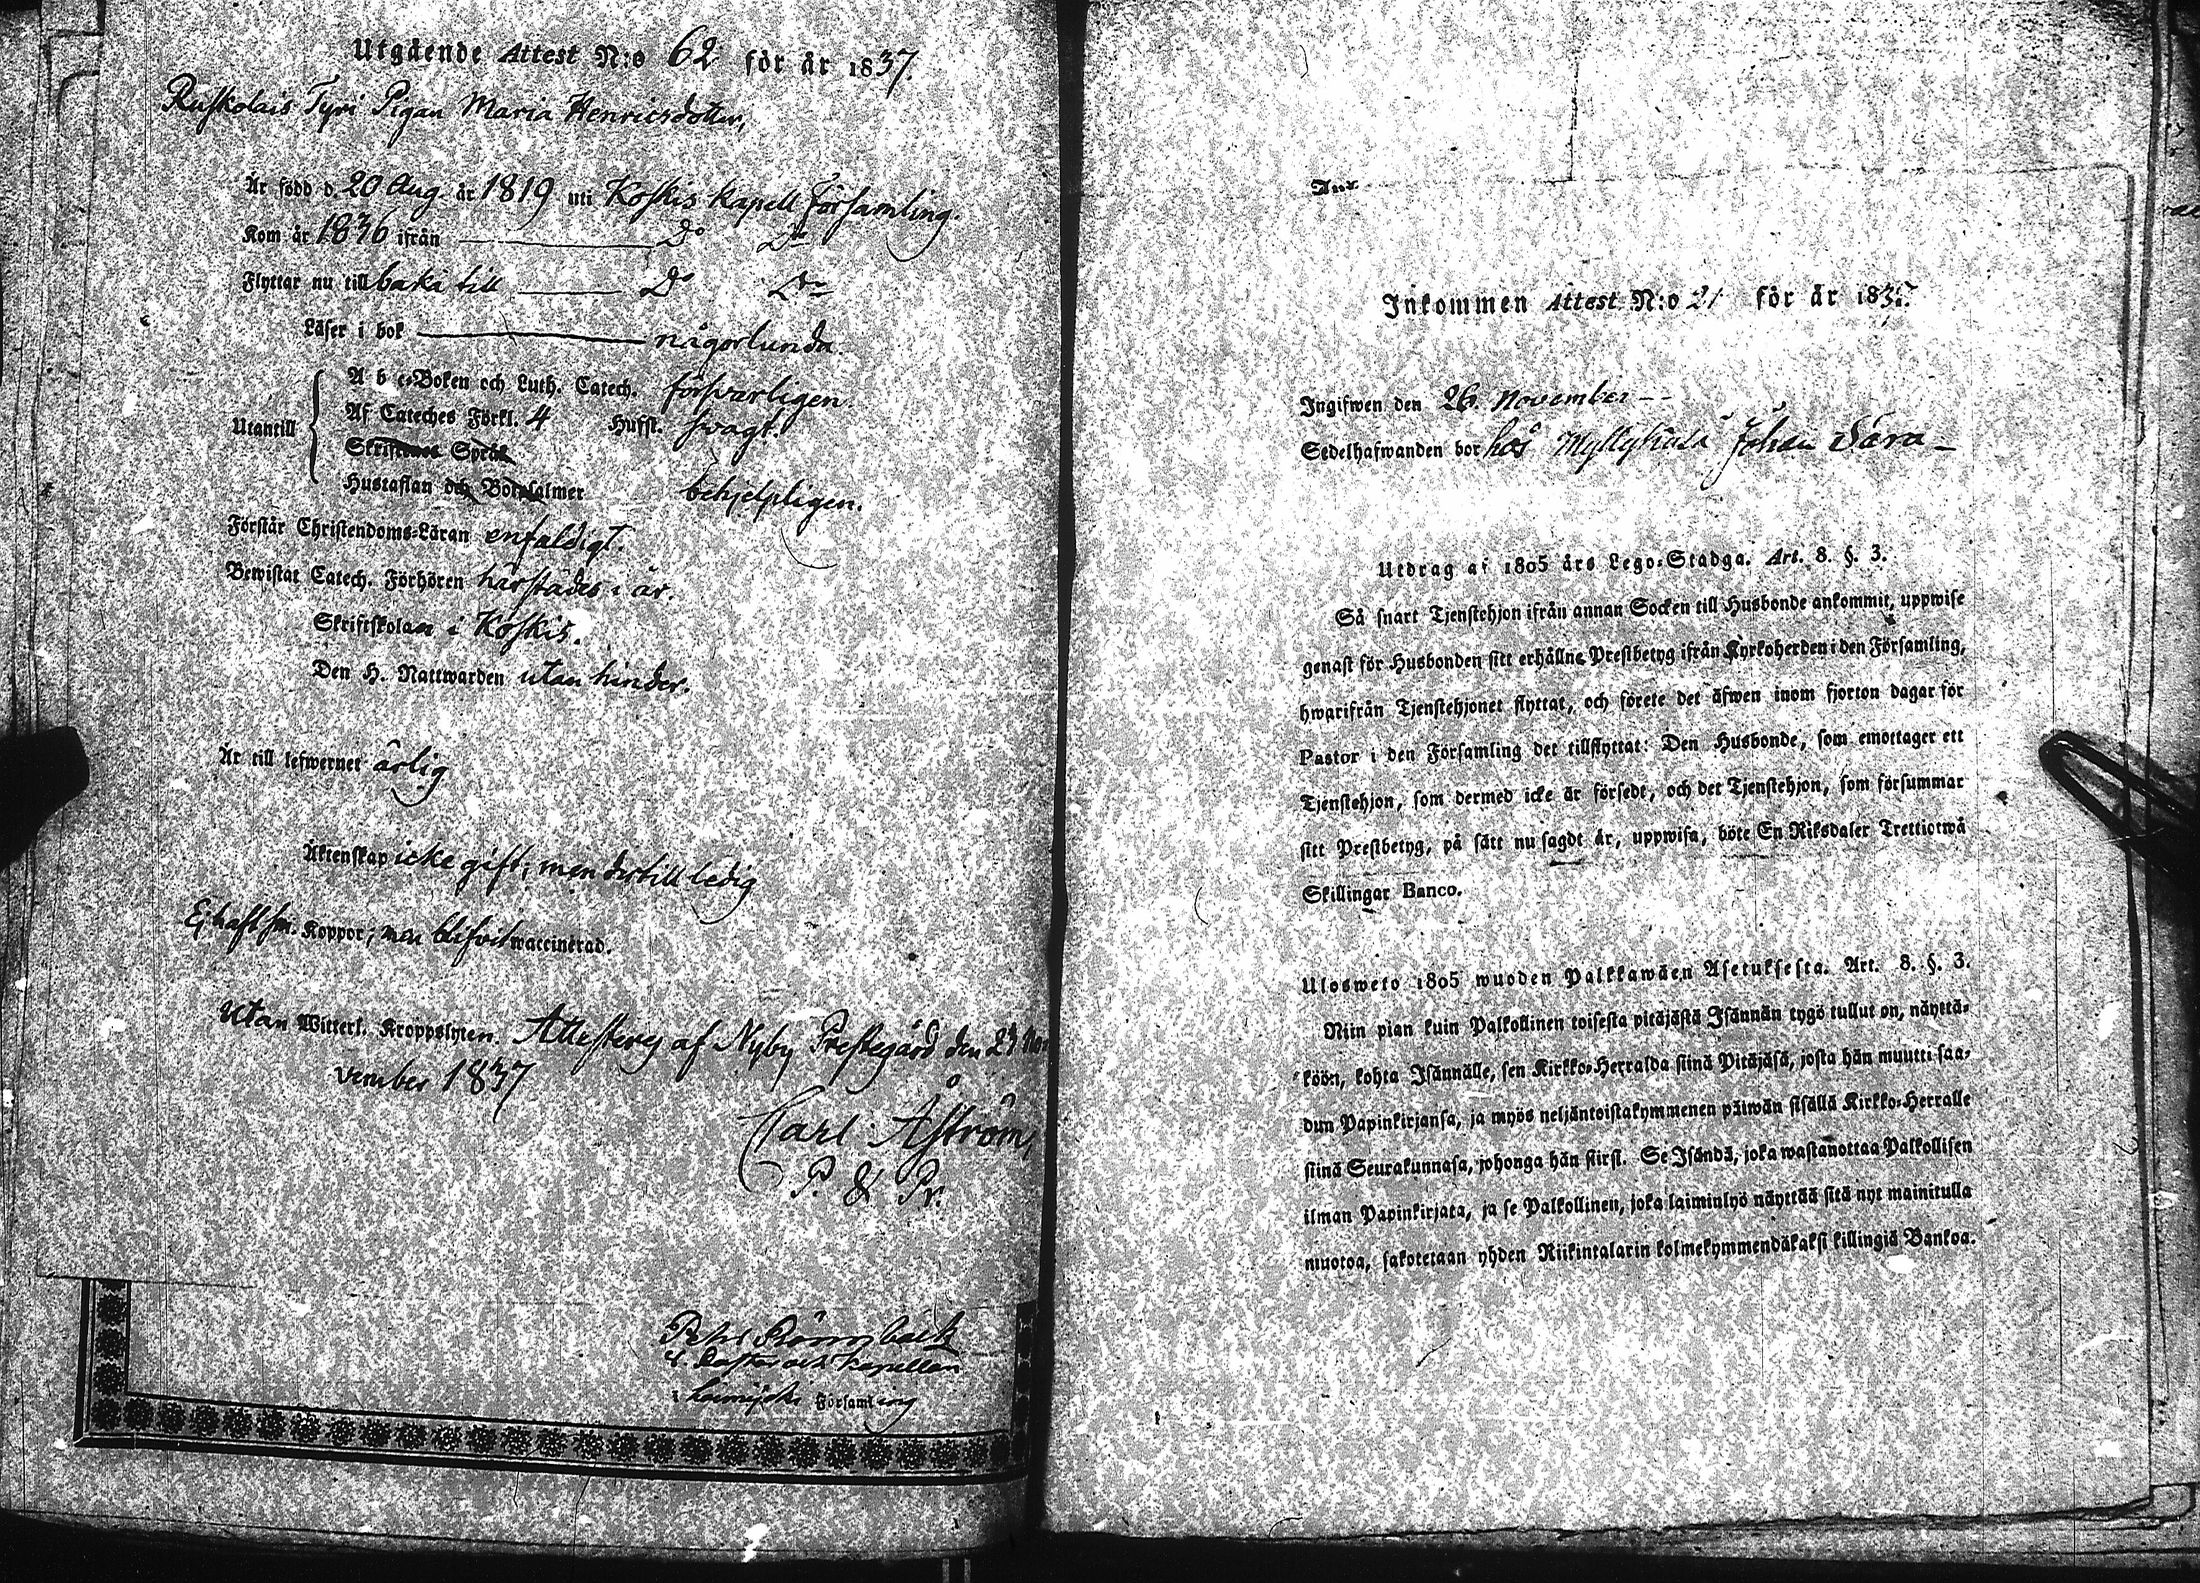 Utgående Attest N:o 62 för år 1837.
Ruskolais Tyri Pigan Maria Henricsdotter,
Är född d. 20 Aug. år 1819 uti Koskis Kapell Församling.
Kom år 1836 ifrån Do Do
Flyttar nu till baka till Do Do
Läser i bok någorlunda.
Utantill
A b c-Boken och Luth. Catech. försvarligen.
Af Cateches Förkl. 4 Hufst. svagt.
Skriftenes Språk
Hustaflan och Botpsalmer behjelpligen.
Förstår Christendoms-Läran enfaldigt.
Bewistat Catech. Förhören härstädes i år.
Skriftskolan i Koskis.
Den H. Nattwarden utan hinder.
Är till lefwernet ärlig
Äktenskap icke gift; men dertill ledig
Ej haft sm. Koppor; men blifvit waccinerad.
Utan Witterl. Kroppslyten. Attesterej af Nyby Prestegård den 23 No-
vember 1837
Carl Åström,
P. & Pr.
Petr
v. Pastor och Kapellan
i Församling
Inkommen Attest N:o 21 för år 1837.
Ingifwen den 26. November
Sedelhafwanden bor hos Johan
Utdrag af 1805 års Lego-Stadga. Art. 8. §. 3.
Så snart Tjenstehjon ifrån annan Socken till Husbonde ankommit, uppwise
genast för Husbonden sitt erhållne Prestbetyg ifrån Kyrkoherden i den Församling,
hwarifrån Tjenstehjonet flyttat, och förete det äfwen inom fjorton dagar för
Pastor i den Församling det tillflyttat: Den Husbonde, som emottager ett
Tjenstehjon, som dermed icke är försedt, och det Tjenstehjon, som försummar
sitt Prestbetyg, på sätt nu sagdt är, uppwisa, böte En Riksdaler Trettiotwå
Skillingar Banco.
Ulosweto 1805 wuoden Palkkawäen Asetuksesta. Art. 8. §. 3.
Niin pian kuin Palkollinen toisesta pitäjästä Isännän tygö tullut on, näyttä-
köön, kohta Isännälle, sen Kirkko-Herralda siinä Pitäjäsä, josta hän muutti saa-
dun Papinkirjansa, ja myös neljäntoistakymmenen päiwän sisällä Kirkko-Herralle
siinä Seurakunnasa, johonga hän siirsi. Se Isändä, joka wastanottaa Palkollisen
ilman Papinkirjata, ja se Palkollinen, joka laiminlyö näyttää sitä nyt mainitulla
muotoa, sakotetaan yhden Riikintalarin kolmekymmendäkaksi killingiä Bankoa.